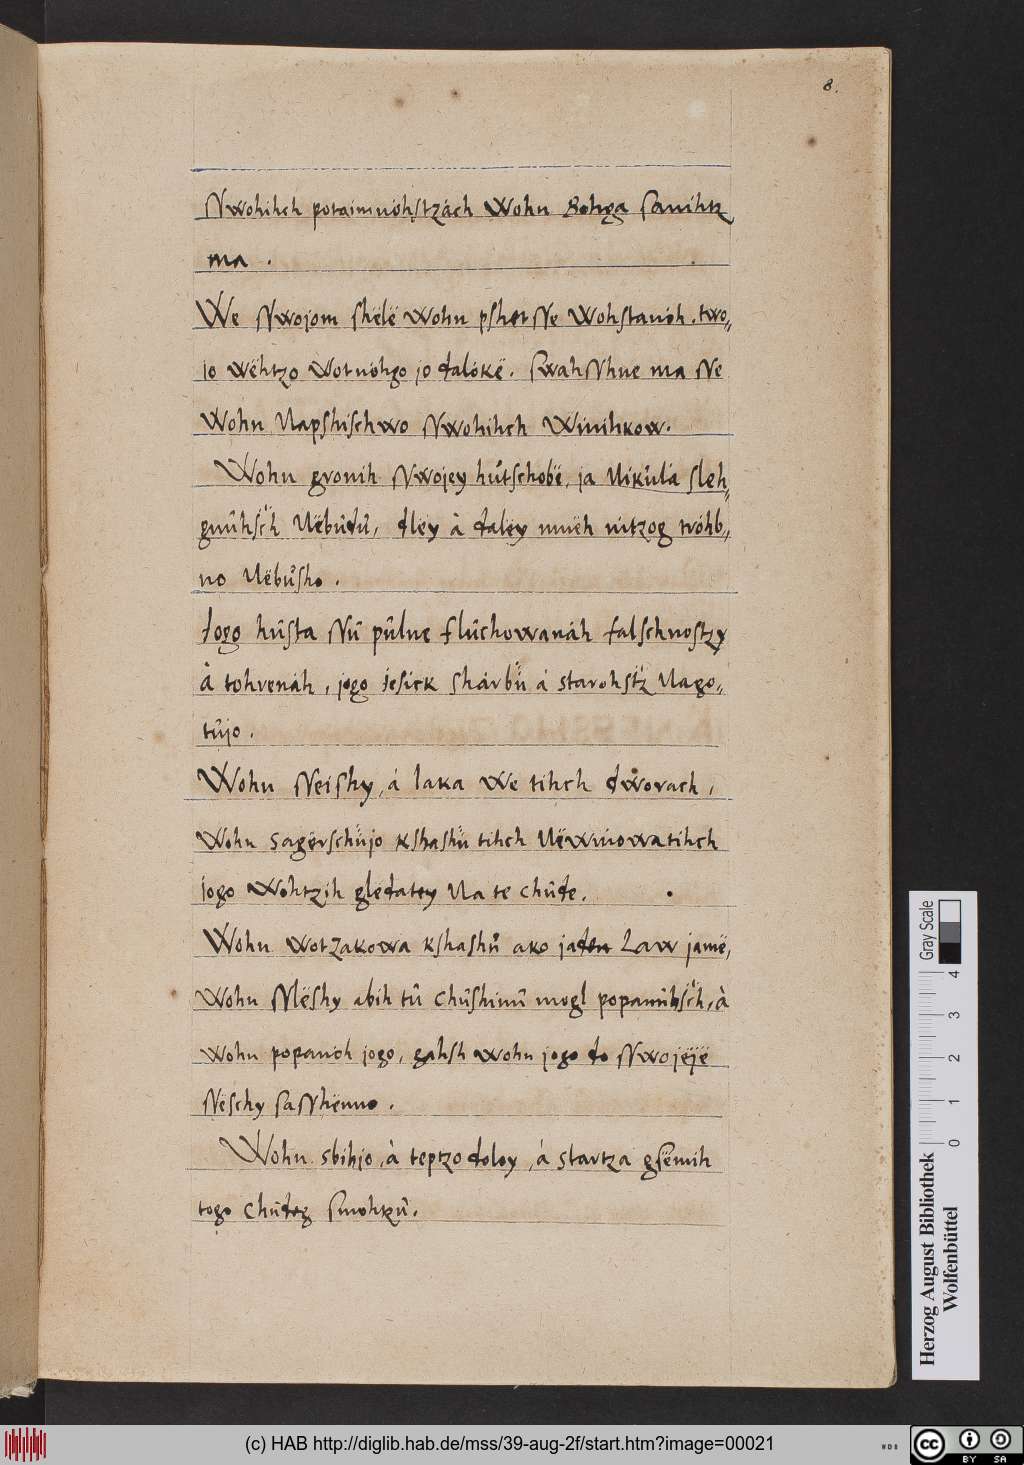 8.
Swohihch potaimnóhstzách Wohn Bohga sanihtz
ma .
We Swojom shëlë wohn pshet Se Wohstanóh . two„
jo wëhtzo Wotnóhgo jo dalókë . swahShne ma Se
Wohn Napshischwo Swohihch Winihkow.
Wohn gronih Swojey hůtschobë, ja Nikůla sleh„
gnůhsch Nëbůdů, dlëy à dalëy mnëh nitzog twóhb„
no Nëbůsho .
Jogo hůsta Sů půlne flůchowanáh falschnostzy
à tohrenáh , jogo jesick shárbů á starohstz Nago„
tůjo .
Wohn Seishy, á laka We tihch dworach ,
Wohn sagërschůjo kshashů tihch Nëwinowatihch
jogo Wohtzih glëdatey Na te chůde .
Wohn wotzakowa kshashů ako jaden Law jamë,
Wohn Slëshy abih tů Chůshinů mogl popanůhsch, à
wohn popanóh jogo, gahsh wohn jogo do Swojëjë
Sëschy saShënno .
Wohn sbihjo, à teptzo doloy, á startza gsëmih
togo chůdeg smohtzů .
Herzog August Bibliothek
Wolfenbüttel
0 1 2 3 4
Gray Scale
(c) HAB http://diglib.hab.de/mss/39-aug-2f/start.htm?image=00021
WDB
cc BY SA